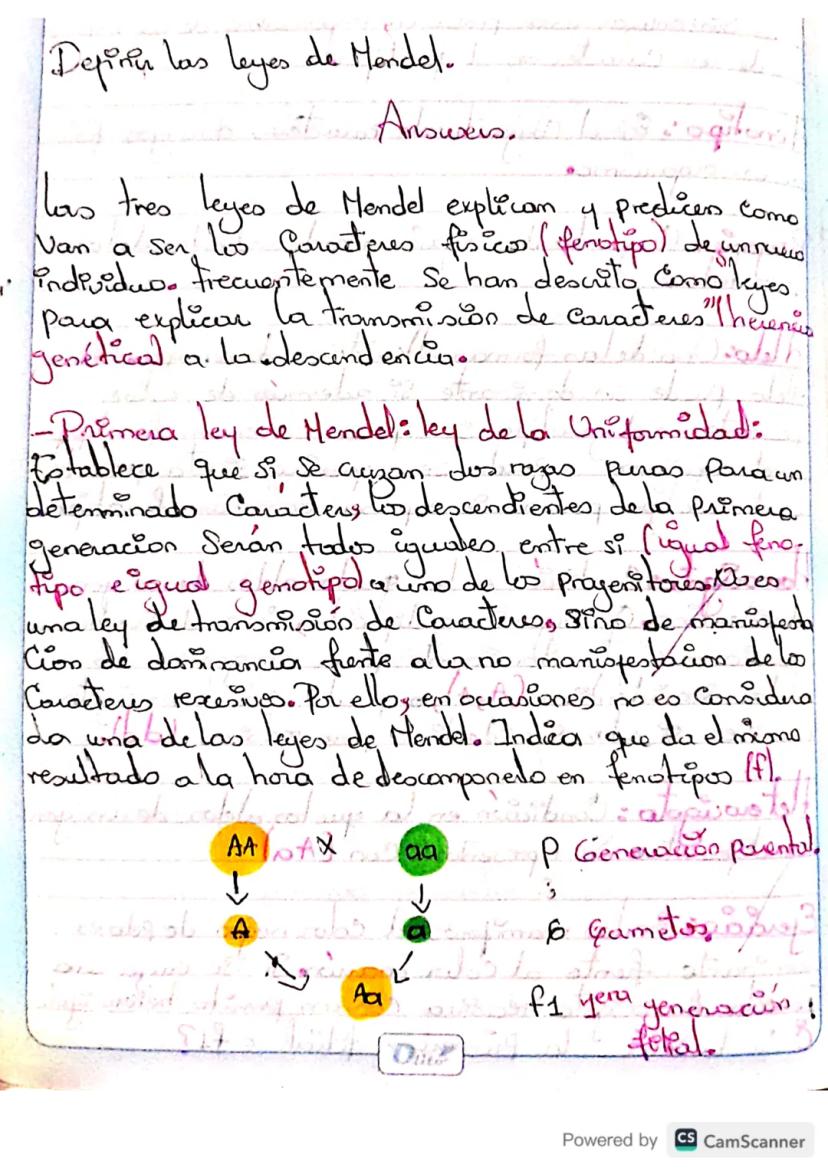 Definir las leyes de Mendel.
Answers.
Las tres leyes de Mendel explican y predicen como
van a ser los caracteres físicos (fenotipo) de un nuevo
individuo. frecuentemente se han descrito como "leyes
para explicar la transmisión de caracteres" (herencia
genética) a la descendencia.
-Primera ley de Mendel: ley de la Uniformidad:
Establece que si se cruzan dos razas puras para un
determinado carácter, los descendientes de la primera
generacion serán todos iguales entre si (igual feno-
tipo e igual genotipo) a uno de los progenitores. No es
una ley de transmisión de caracteres, sino de manifesta
ción de dominancia frente a la no manifestacion de los
caracteres recesivos. Por ello, en ocasiones no es considera
da una de las leyes de Mendel. Indica que da el mismo
resultado a la hora de descomponerlo en fenotipos (f).
AA X aa P Generación parental.
A a 6 Gametos.
Aa f1 1era generación
filial.
Powered by CS CamScanner